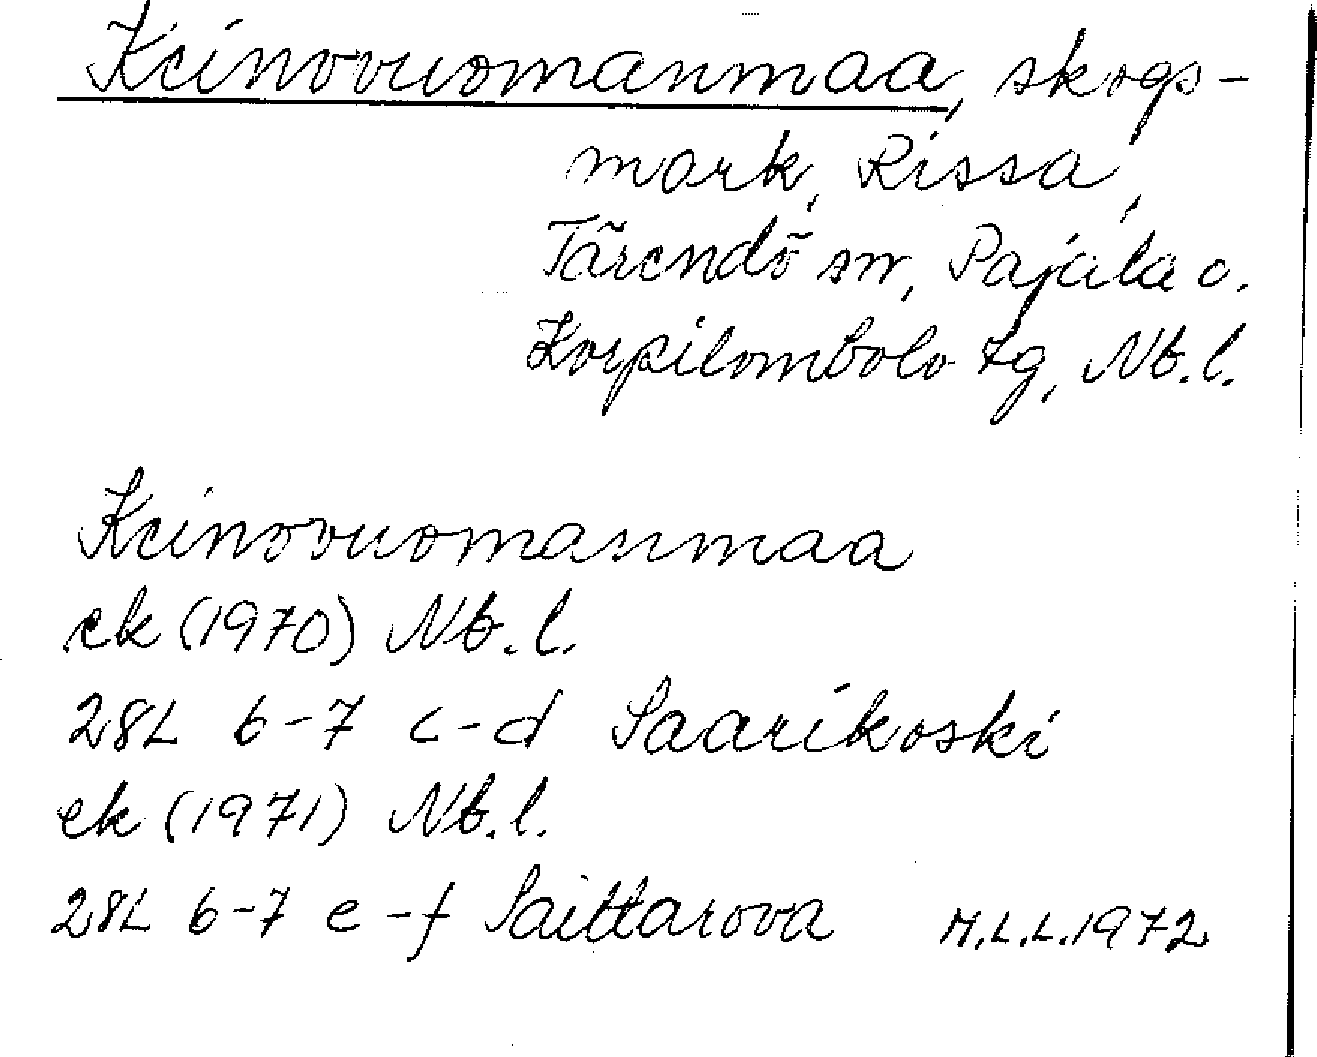 Keinovuomanmaa, skogs-
mark, Rissa,
Tärendö sn, Pajala o.
Korpilombolo tg, Nb.l.
Keinovuomanmaa
ek (1970) Nb.l.
28L 6-7 c-d Saarikoski
ek (1971) Nb.l.
28L 6-7 e-f Saittarova M.L.L. 1972